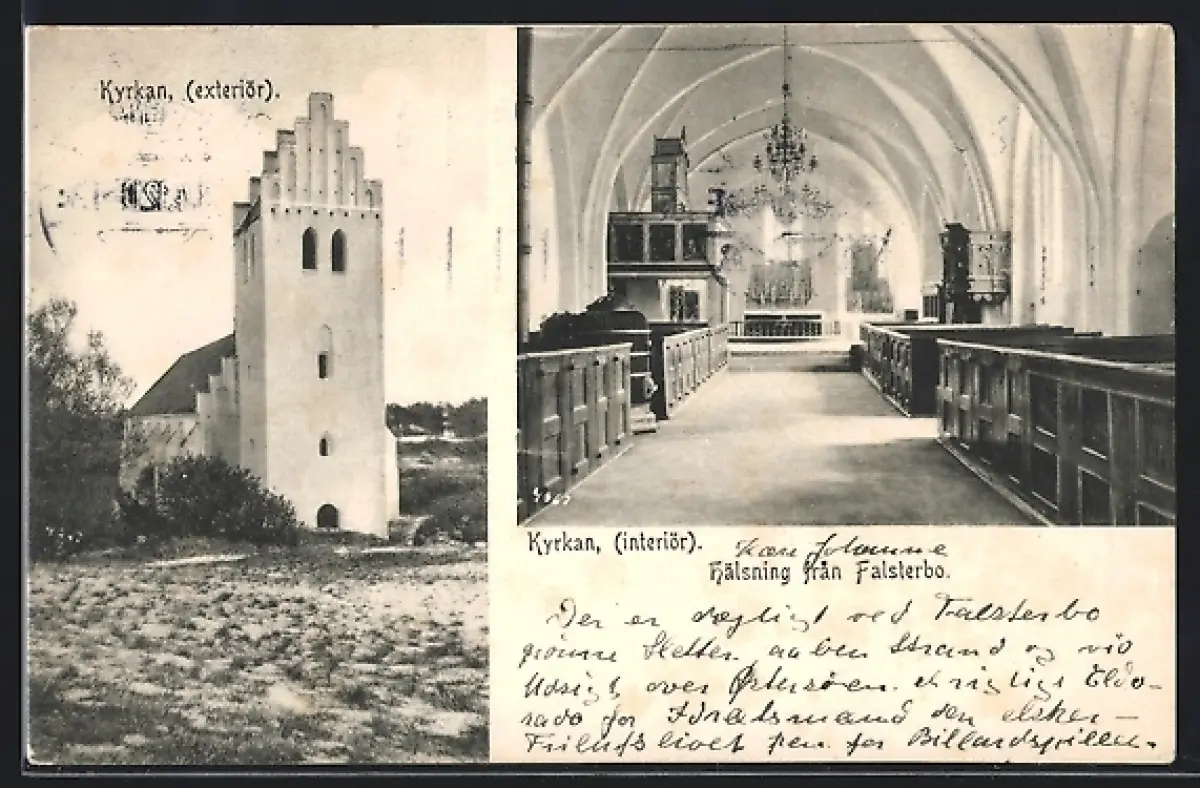 Kyrkan, (exteriör).
Kyrkan, (interiör).
Kære Johanne
Hälsning från Falsterbo.
Der er dægligt ved Falsterbo
grönne Sletter aaben Strand og vid
Udsigt over Østersøen. et rigtigt Eldo-
rado for Idrætsmand den elsker
Friluftslivet fren for Billardspillen-